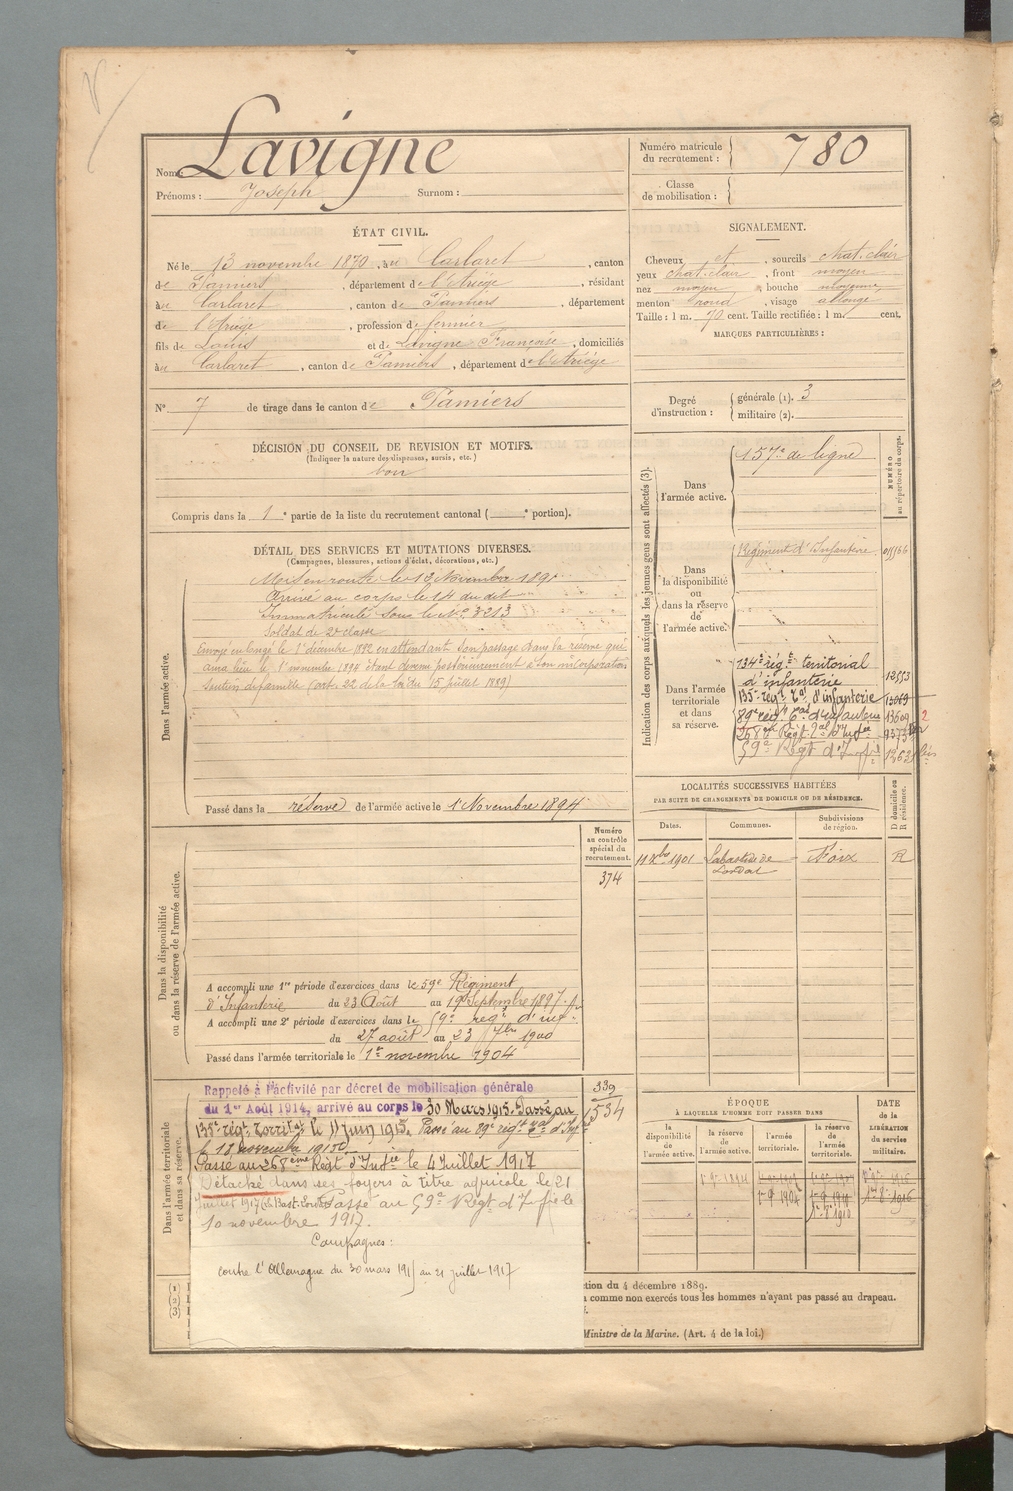 Nom: Lavigne
Prénoms: Joseph Surnom:
Numéro matricule du recrutement: 780
Classe de mobilisation:
ÉTAT CIVIL.
Né le 13 novembre 1870, à u Carlaret, canton
de Pamiers, département de l'Ariège, résidant
à u Carlaret, canton de Pamiers, département
de l'Ariège, profession de fermier
fils de Louis et de Lavigne Françoise, domiciliés
à u Carlaret, canton de Pamiers, département de l'Ariège
N° 7 de tirage dans le canton de Pamiers
SIGNALEMENT.
Cheveux et, sourcils chat. clair
yeux chat. clair, front moyen
nez moyen, bouche moyenne
menton rond, visage allongé
Taille: 1 m. 70 cent. Taille rectifiée: 1 m. cent.
MARQUES PARTICULIÈRES:
Degré d'instruction: générale (1). 3
militaire (2).
DÉCISION DU CONSEIL DE REVISION ET MOTIFS.
(Indiquer la nature des dispenses, sursis, etc.)
bon
Compris dans la 1e partie de la liste du recrutement cantonal ( e portion).
DÉTAIL DES SERVICES ET MUTATIONS DIVERSES.
(Campagnes, blessures, actions d'éclat, décorations, etc.)
Dans l'armée active.
Mis en route le 13 Novembre 1891
Arrivé au corps le 14 du dit
Immatriculé sous le N° 3213
Soldat de 2e classe
Envoyé en congé le 1er décembre 1892 en attendant son passage dans la réserve qui
aura lieu le 1er novembre 1894 étant devenu postérieurement à son incorporation
soutien de famille (art. 22 de la loi du 15 juillet 1889)
Passé dans la réserve de l'armée active le 1er Novembre 1894
Indication des corps auxquels les jeunes gens sont affectés (3).
NUMÉRO au répertoire du corps.
Dans l'armée active. 157e de ligne
Dans la disponibilité ou dans la réserve de l'armée active. Régiment d'Infanterie
Dans l'armée territoriale et dans sa réserve.
134e régt territorial
d'infanterie 12553
135e régt Tal d'infanterie 13069
89e régt Tal d'infanterie 13609 2
268e Régt d'Infie 9373
59e Régt d'Infie
LOCALITÉS SUCCESSIVES HABITÉES
PAR SUITE DE CHANGEMENTS DE DOMICILE OU DE RÉSIDENCE.
Dates. Communes. Subdivisions de région. D domicile ou R résidence.
11 Xbre 1901 Labastide de Lordat Foix R
Dans la disponibilité ou dans la réserve de l'armée active.
Numéro au contrôle spécial du recrutement.
374
A accompli une 1re période d'exercices dans le 59e Régiment
d'Infanterie du 23 Août au 19 Septembre 1897
A accompli une 2e période d'exercices dans le 59e régt d'inf.
du 27 août au 23 7bre 1900
Passé dans l'armée territoriale le 1er novembre 1904
Dans l'armée territoriale et dans sa réserve.
339
1534
Rappelé à l'activité par décret de mobilisation générale
du 1er Août 1914, arrivé au corps le 30 Mars 1915. Passé au
135e régt territal le 11 juin 1915. Passé au 89e régt Tal d'Inf
le 18 novembre 1915
Passé au 268ème Régt d'Infie le 4 Juillet 1917
Détaché dans ses foyers à titre agricole le 21
Juillet 1917 Passé au 59e Régt d'Infie le
10 novembre 1917.
Campagnes:
contre l'Allemagne du 30 mars 1915 au 21 juillet 1917
ÉPOQUE
À LAQUELLE L'HOMME DOIT PASSER DANS
la disponibilité de l'armée active. la réserve de l'armée active. l'armée territoriale. la réserve de l'armée territoriale.
DATE de la LIBÉRATION du service militaire.
(1)
(2)
(3)
tion du 4 décembre 1889.
comme non exercés tous les hommes n'ayant pas passé au drapeau.
Ministre de la Marine. (Art. 4 de la loi.)